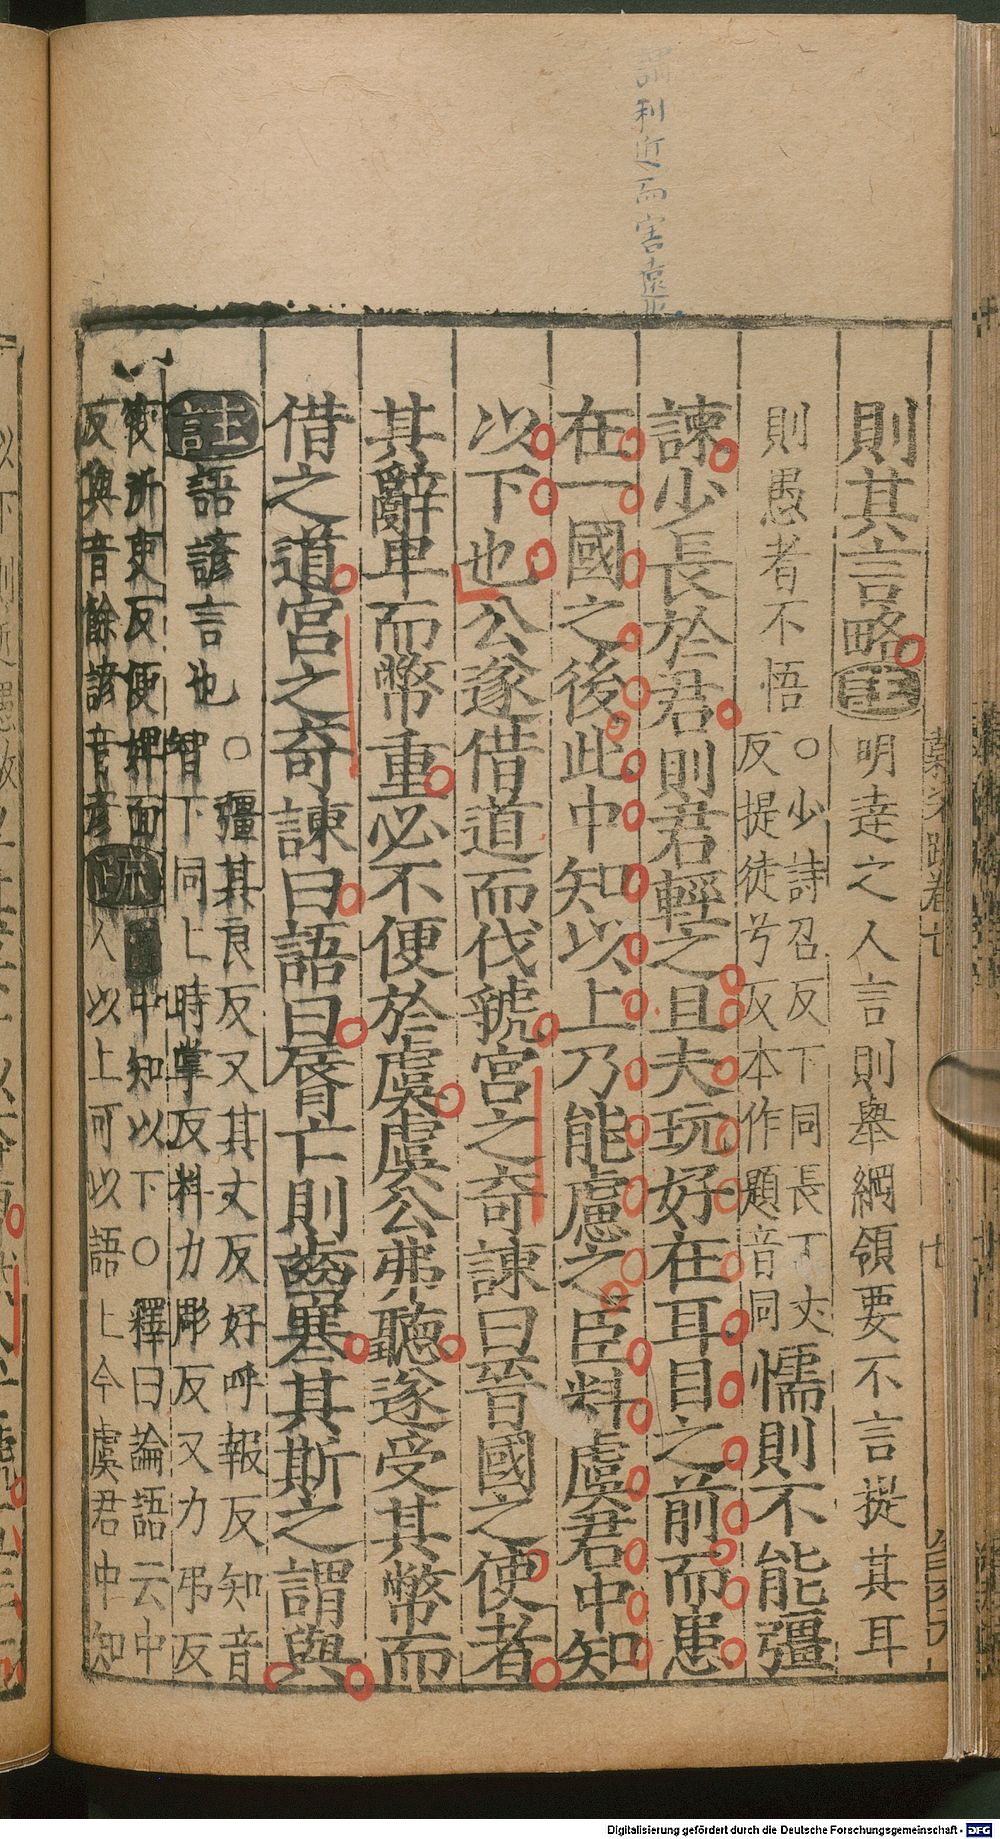 謂利近而害遠也
則其言略註明達之人言則舉綱領要不言提其耳
則愚者不悟○少詩召反下同長丁丈
反提徒兮反本作題音同懦則不能彊
諫少長於君則君輕之且夫玩好在耳目之前而患
在一國之後此中知以上乃能慮之臣料虞君中知
以下也公遂借道而伐虢宮之奇諫曰晉國之使者
其辭卑而幣重必不便於虞虞公弗聽遂受其幣而
借之道宮之奇諫曰語曰脣亡則齒寒其斯之謂與
註語諺言也○彊其良反又其丈反好呼報反知音
智下同上時掌反料力彫反又力弔反
使所吏反便婢面反與音餘諺音彥疏中知以下○釋曰論語云中
人以上可以語上今虞君中知
Digitalisierung gefördert durch die Deutsche Forschungsgemeinschaft - DFG